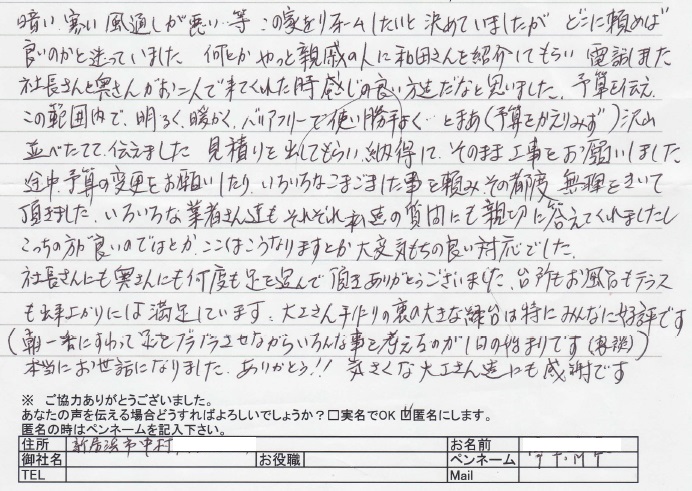 暗い 寒い 風通しが悪い…等 この家をリホームしたいと決めていましたが どこに頼めば
良いのかと迷っていました 何とか やっと親戚の人に和田さんを紹介してもらい 電話しました
社長さんと奥さんがお二人で来てくれた時 感じの良い方達だなと思いました、予算を伝え
この範囲内で、明るく、暖かく、バリアフリーで使い勝手よく…とまあ(予算をかえりみず)沢山
並べたてて、伝えました 見積りを出してもらい、納得して、そのまま工事をお願いしました
途中、予算の変更をお願いしたり、いろいろなこまごました事を頼み その都度 無理をきいて
頂きました、いろいろな業者さん達も それぞれ 私達の質問にも親切に答えてくれましたし
こっちの方が良いのではとか、ここはこうなりますとか 大変気もちの良い対応でした、
社長さんにも奥さんにも何度も足を運んで頂きありがとうございました、台所もお風呂もテラス
も出来上がりには満足しています、大工さん手作りの裏の大きな縁台は特にみんなに好評です
(朝一番にすわって足をブラブラさせながらいろんな事を考えるのが1日の始まりです(私談))
本当にお世話になりました、ありがとう!! 気さくな大工さん達にも感謝です
※ ご協力ありがとうございました。
あなたの声を伝える場合どうすればよろしいでしょうか?□実名でOK ☑匿名にします。
匿名の時はペンネームを記入下さい。
住所 新居浜市中村 お名前
御社名 お役職 ペンネーム
TEL Mail